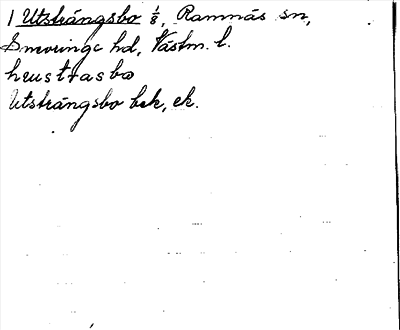 1 Utsträngsbo 1/8, Ramnäs sn,
Snevringe hd, Västm. l.
Utsträngsbo bek, ek.